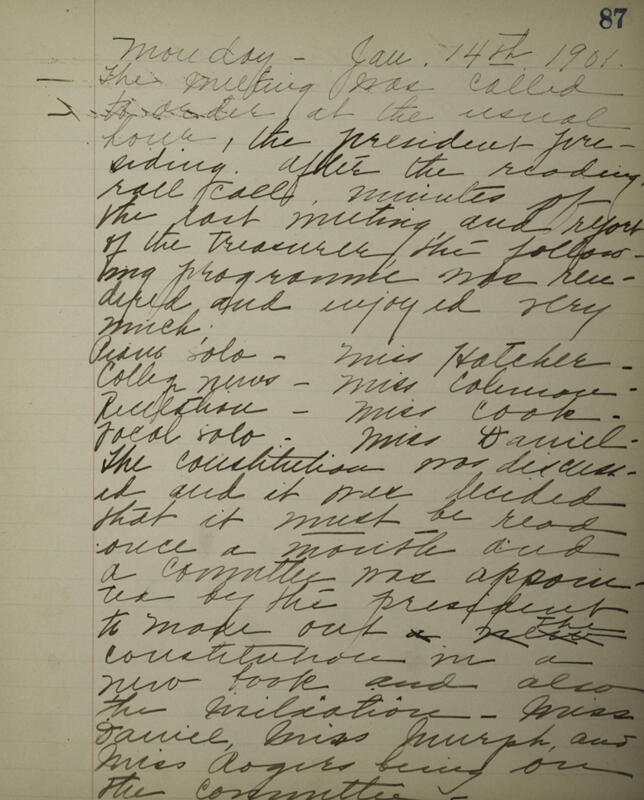 87
Monday - Jan. 14th 1901.
The meeting was called
to order at the usual
hour, the president pre-
siding. After the reading
roll call, minutes of
the last meeting and report
of the treasurer, the follow-
ing programme was ren-
dered and enjoyed very
much.
Piano solo - Miss Hatcher -
College news - Miss Coleman -
Recitation - Miss Cook -
Vocal solo - Miss Daniel -
The constitution was discuss-
ed and it was decided
that it must be read
once a month and
a committee was appoin-
ted by the president
to made out a new the
constitution in a
new book and also
the initiation - Miss
Daniel, Miss Murph, and
Miss Rogers being on
the committee -